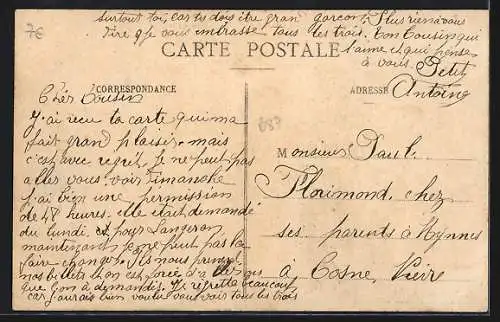 7€
surtout toi, car tu dois être gran garçon. Plus rien a vous
dire q je vous embrasse tous les trois. ton cousin qui
t'aime et qui pense
à vous. Petit
Antoine
CARTE POSTALE
CORRESPONDANCE
ADRESSE
Cher Cousin
J'ai reçu la carte qui m'a
fait grand plaisir. mais
c'est avec regret. Je ne peut pas
aller vous voir Dimanche
j'ai bien une permission
de 48 heures. elle était demandé
du lundi. et pour
maintenant je ne peut pas la
faire changer. ils nous prend
nos billets
que l'on a demandés. Je regrette beaucoup
car j'aurais bien voulu vous voir tous les trois
Monsieur Paul
Florimond. chez
ses parents à
à Cosne,